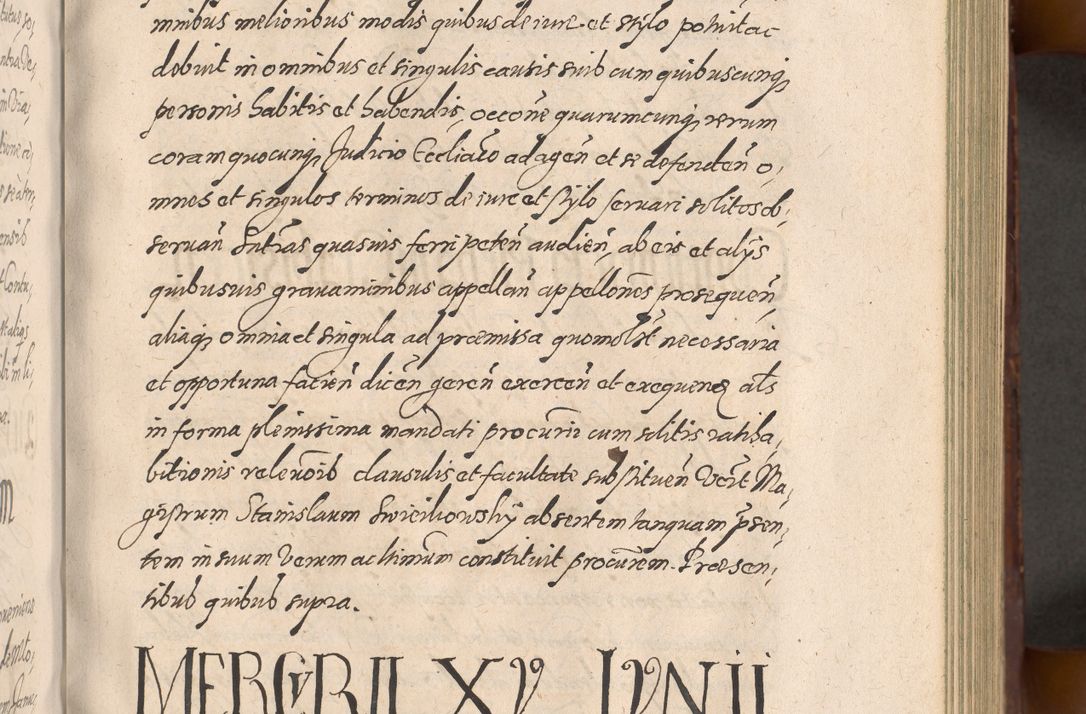 mnibus melioribus modis quibus de iure et stylo potuit ac
debuit in omnibus et singulis causis suib cum quibuscunq,
personis habitis et habendis, occoñe quarumcunq, rerum
coram quocunq, Judicio Eccliaco ad ageñ et se defendeñ o,
mnes et singulos terminos de iure et stylo servari solitos ob,
servañ Sntr̃as quasuis ferri peteñ audieñ, ab eis et alijs
quibusuis gravaminibus appellañ appellões prosequeñ
aliaq, omnia et singula ad præmissa quomolt̃ necessaria
et opportuna facieñ diceñ gereñ exerceñ et exequeñ al̃s
in forma plenissima mandati procur̃rii cum solitis ratiha,
bitionis releuõib clausulis et facultate substitueñ Ver̃t Ma,
gistrum Stanislaum Swieciowskÿ absentem tanquam p̃sen,
tem in suum Verum ac ltimũm constituit procũrem. Præsen,
tibus quibus supra.
MERCVRII XV IVNII